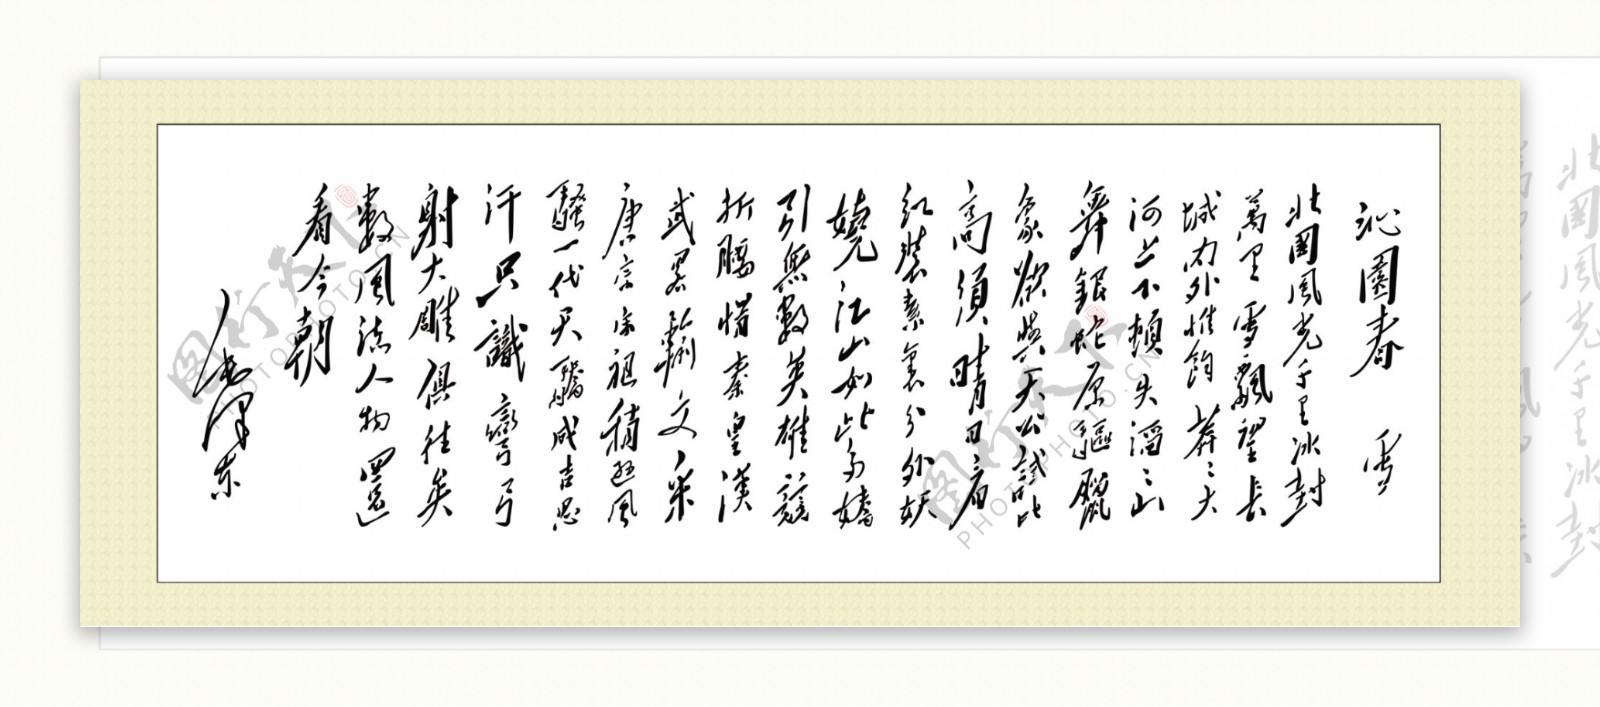 沁園春 雪
北國風光千里冰封
萬里雪飄望長
城內外惟餘莽々大
河上下頓失滔々山
舞銀蛇原驅臘
象欲與天公試比
高須晴日看
紅裝素裹分外妖
嬈江山如此多嬌
引無數英雄競
折腰惜秦皇漢
武略輸文采
唐宗宋祖稍遜風
騷一代天驕成吉思
汗只識彎弓
射大雕俱往矣
數風流人物還
看今朝
毛澤東
图行天下
PHOTOPHOTO.CN
图行天下
PHOTOPHOTO.CN
北國風光千里冰封